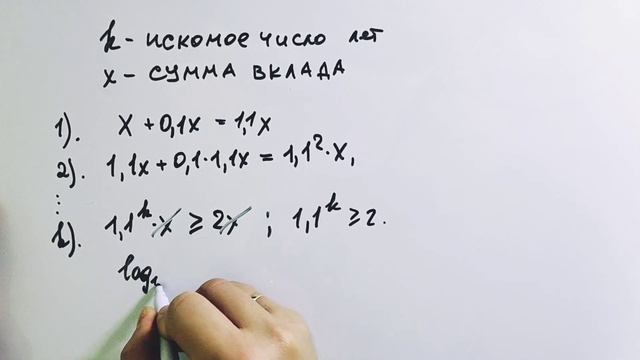 k - искомое число лет
x - СУММА ВКЛАДА
1). x + 0,1x = 1,1x
2). 1,1x + 0,1·1,1x = 1,1²·x,
⋮
k). 1,1ᵏ·x ≥ 2x ; 1,1ᵏ ≥ 2.
log₁